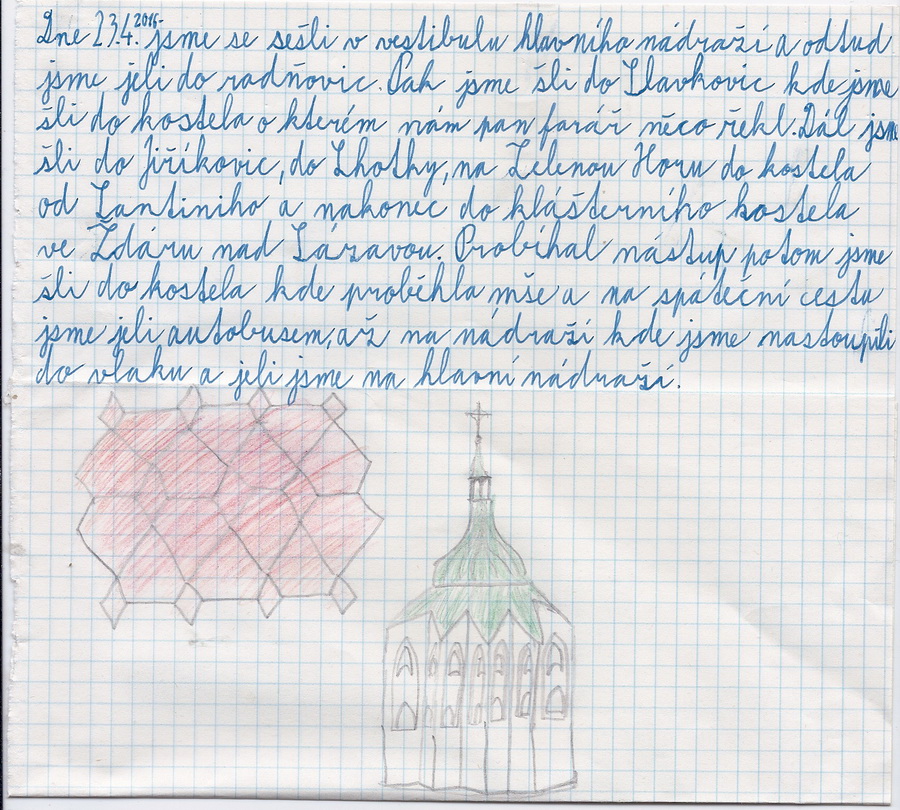 Dne 23.4. 2016 jsme se sešli v vestibulu hlavního nádraží a odtud
jsme jeli do radňovic. Pak jsme šli do Slavkovic kde jsme
šli do kostela o kterém nám pan farář něco řekl. Dál jsme
šli do Jiříkovic, do Lhotky, na Zelenou Horu do kostela
od Santiniho a nakonec do klášterního kostela
ve Žďáru nad Sázavou. Probíhal nástup potom jsme
šli do kostela kde proběhla mše a na spáteční cestu
jsme jeli autobusem, až na nádraží kde jsme nastoupili
do vlaku a jeli jsme na hlavní nádraží.